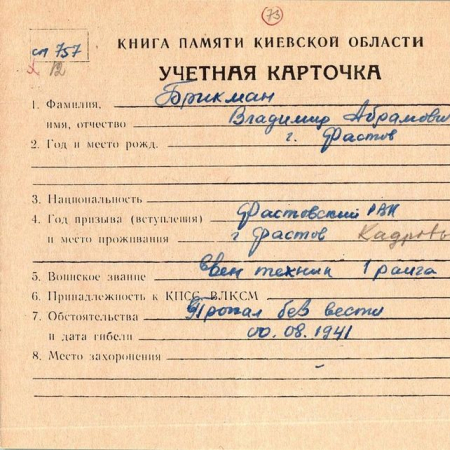 73
сп 757
12
КНИГА ПАМЯТИ КИЕВСКОЙ ОБЛАСТИ
УЧЕТНАЯ КАРТОЧКА
1. Фамилия, Брикман
имя, отчество Владимир Абрамович
2. Год и место рожд. г. Фастов
3. Национальность
4. Год призыва (вступления) Фастовский РВК
и место проживания г Фастов Кадровы
5. Воинское звание воентехник 1 ранга
6. Принадлежность к КПСС, ВЛКСМ
7. Обстоятельства Пропал без вести
и дата гибели 00.08.1941
8. Место захоронения